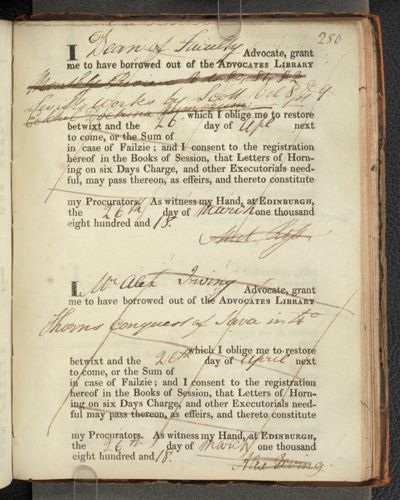 286
I Dean of Faculty Advocate, grant
me to have borrowed out of the ADVOCATES LIBRARY
Swifts works by Scott Vol 8, &
betwixt and the 26 which I oblige me to restore
day of Apl next
to come, or the Sum of
in case of Failzie; and I consent to the registration
hereof in the Books of Session, that Letters of Horn-
ing on six Days Charge, and other Executorials need-
ful, may pass thereon, as effeirs, and thereto constitute
my Procurators. As witness my Hand, at EDINBURGH,
the 26th day of March one thousand
eight hundred and 18.
I, Mr Alexr Irving Advocate, grant
me to have borrowed out of the ADVOCATES LIBRARY
Thorns Conquest of Java in 4to
which I oblige me to restore
betwixt and the 26th day of April next
to come, or the Sum of
in case of Failzie; and I consent to the registration
hereof in the Books of Session, that Letters of Horn-
ing on six Days Charge, and other Executorials need-
ful may pass thereon, as effeirs, and thereto constitute
my Procurators. As witness my Hand, at EDINBURGH,
the 26th day of March one thousand
eight hundred and 18.
Alex Irving